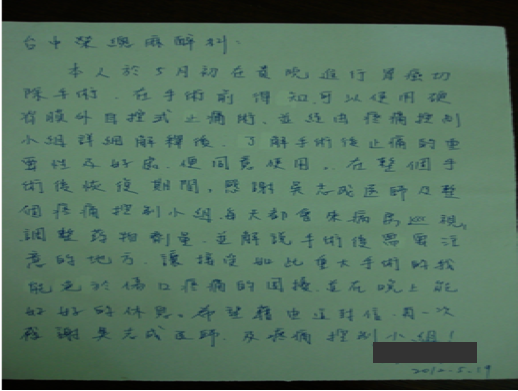 台中榮總麻醉科:
本人於5月初在貴院進行胃癌切
除手術,在手術前得知可以使用硬
脊膜外自控式止痛術,並經由疼痛控制
小組詳細解釋後,了解手術後止痛的重
要性及好處,便同意使用。在整個手
術後恢復期間,感謝吳志成醫師及整
個疼痛控制小組,每天都會來病房巡視,
調整藥物劑量,並解說手術後需要注
意的地方,讓接受如此重大手術的我
能免於傷口疼痛的困擾,並在晚上能
好好的休息。希望藉由這封信,再一次
感謝吳志成醫師,及疼痛控制小組!
2010.5.19